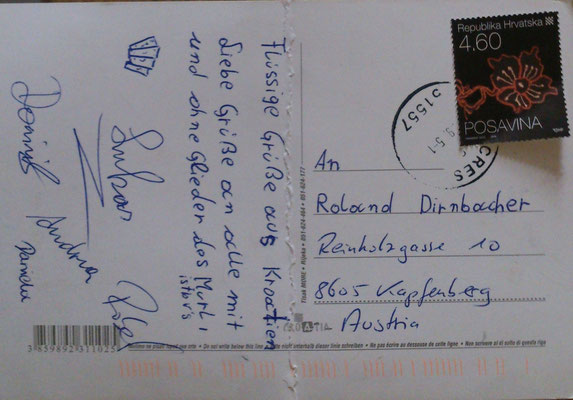 Flüssige Grüße aus Kroatien
Liebe Grüße an alle mit
und ohne Glieder des Murtl
istur's
Lukas
Dominik
Andrea
Daniela
3859892311025
Tisak MORE • Rijeka • 051-624-464 • 051-624-177
CROATIA
Republika Hrvatska
4,60
POSAVINA
51557
CRES
An
Roland Dirnbacher
Reinholzgasse 10
8605 Kapfenberg
Austria
• Do not write below this line • Bitte nicht unterhalb dieser linie schreiben • Ne pas écrire au dessous de cette ligne • Non scrivere al di sotto di questa riga